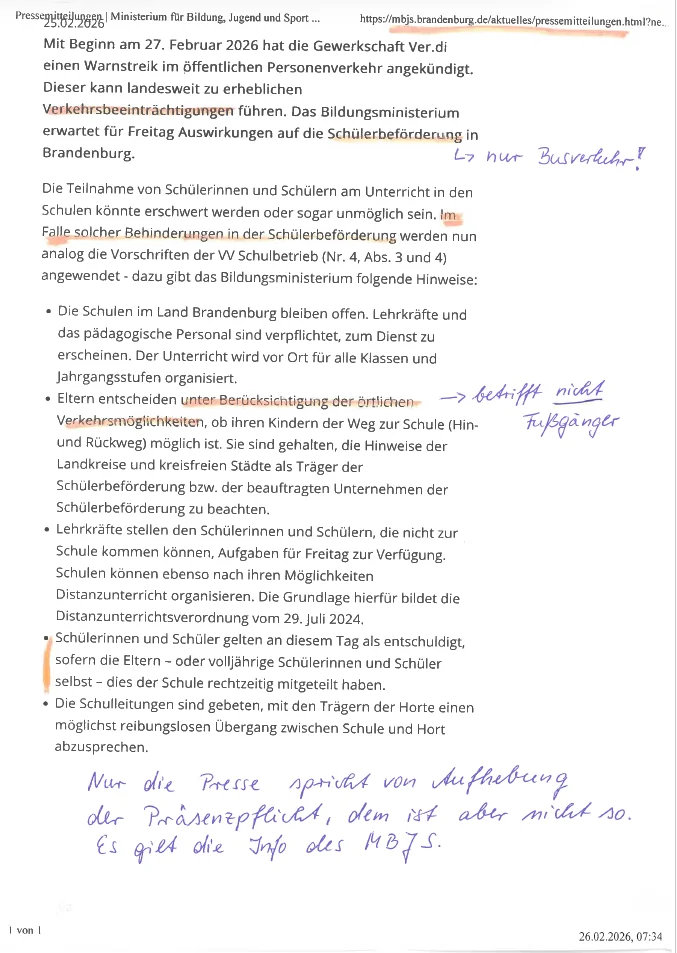 Pressemitteilungen | Ministerium für Bildung, Jugend und Sport ...
https://mbjs.brandenburg.de/aktuelles/pressemitteilungen.html?ne...
25.02.2026
Mit Beginn am 27. Februar 2026 hat die Gewerkschaft Ver.di
einen Warnstreik im öffentlichen Personenverkehr angekündigt.
Dieser kann landesweit zu erheblichen
Verkehrsbeeinträchtigungen führen. Das Bildungsministerium
erwartet für Freitag Auswirkungen auf die Schülerbeförderung in
Brandenburg.
↳ nur Busverkehr!
Die Teilnahme von Schülerinnen und Schülern am Unterricht in den
Schulen könnte erschwert werden oder sogar unmöglich sein. Im
Falle solcher Behinderungen in der Schülerbeförderung werden nun
analog die Vorschriften der VV Schulbetrieb (Nr. 4, Abs. 3 und 4)
angewendet - dazu gibt das Bildungsministerium folgende Hinweise:
• Die Schulen im Land Brandenburg bleiben offen. Lehrkräfte und
das pädagogische Personal sind verpflichtet, zum Dienst zu
erscheinen. Der Unterricht wird vor Ort für alle Klassen und
Jahrgangsstufen organisiert.
• Eltern entscheiden unter Berücksichtigung der örtlichen
Verkehrsmöglichkeiten, ob ihren Kindern der Weg zur Schule (Hin-
und Rückweg) möglich ist. Sie sind gehalten, die Hinweise der
Landkreise und kreisfreien Städte als Träger der
Schülerbeförderung bzw. der beauftragten Unternehmen der
Schülerbeförderung zu beachten.
→ betrifft nicht
Fußgänger
• Lehrkräfte stellen den Schülerinnen und Schülern, die nicht zur
Schule kommen können, Aufgaben für Freitag zur Verfügung.
Schulen können ebenso nach ihren Möglichkeiten
Distanzunterricht organisieren. Die Grundlage hierfür bildet die
Distanzunterrichtsverordnung vom 29. Juli 2024.
• Schülerinnen und Schüler gelten an diesem Tag als entschuldigt,
sofern die Eltern – oder volljährige Schülerinnen und Schüler
selbst – dies der Schule rechtzeitig mitgeteilt haben.
• Die Schulleitungen sind gebeten, mit den Trägern der Horte einen
möglichst reibungslosen Übergang zwischen Schule und Hort
abzusprechen.
Nur die Presse spricht von Aufhebung
der Präsenzpflicht, dem ist aber nicht so.
Es gilt die Info des MBJS.
1 von 1
26.02.2026, 07:34